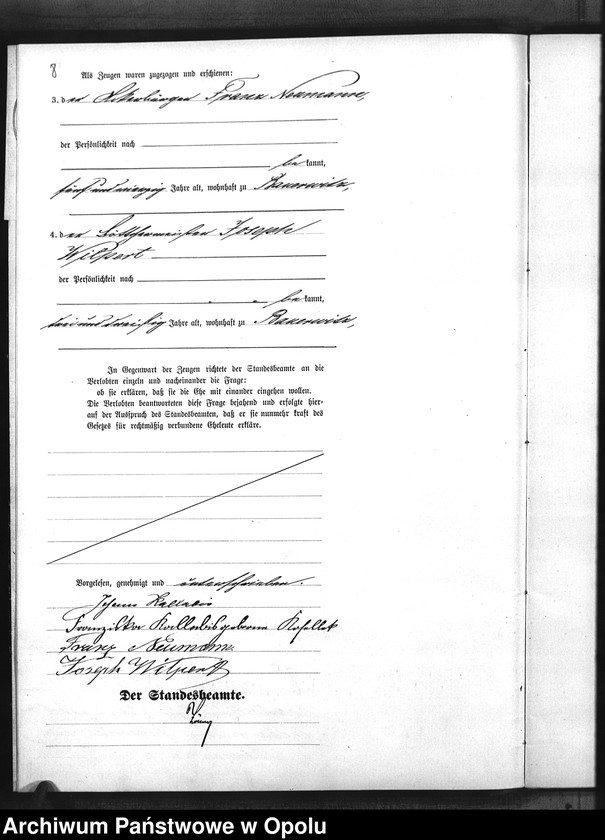 8
Als Zeugen waren zugezogen und erschienen:
3. der Ackerbürger Franz Neumann,
der Persönlichkeit nach
bekannt,
fünf und vierzig Jahre alt, wohnhaft zu Bauerwitz,
4. der Böttchermeister Joseph
Wilpert
der Persönlichkeit nach
bekannt,
Jahre alt, wohnhaft zu Bauerwitz,
In Gegenwart der Zeugen richtete der Standesbeamte an die
Verlobten einzeln und nacheinander die Frage:
ob sie erklären, daß sie die Ehe mit einander eingehen wollen.
Die Verlobten beantworteten diese Frage bejahend und erfolgte hier-
auf der Ausspruch des Standesbeamten, daß er sie nunmehr kraft des
Gesetzes für rechtmäßig verbundene Eheleute erkläre.
Vorgelesen, genehmigt und unterschrieben.
Johann Kallabis
Franziska Kallabis geborene
Franz Neumann.
Joseph Wilpert
Der Standesbeamte.
Archiwum Państwowe w Opolu